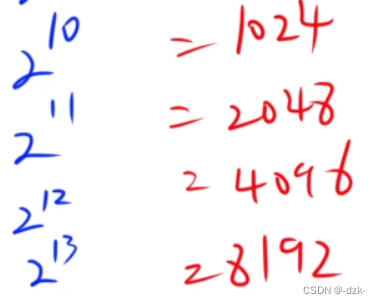 2^10 = 1024
2^11 = 2048
2^12 = 4096
2^13 = 8192
CSDN @-dzk-